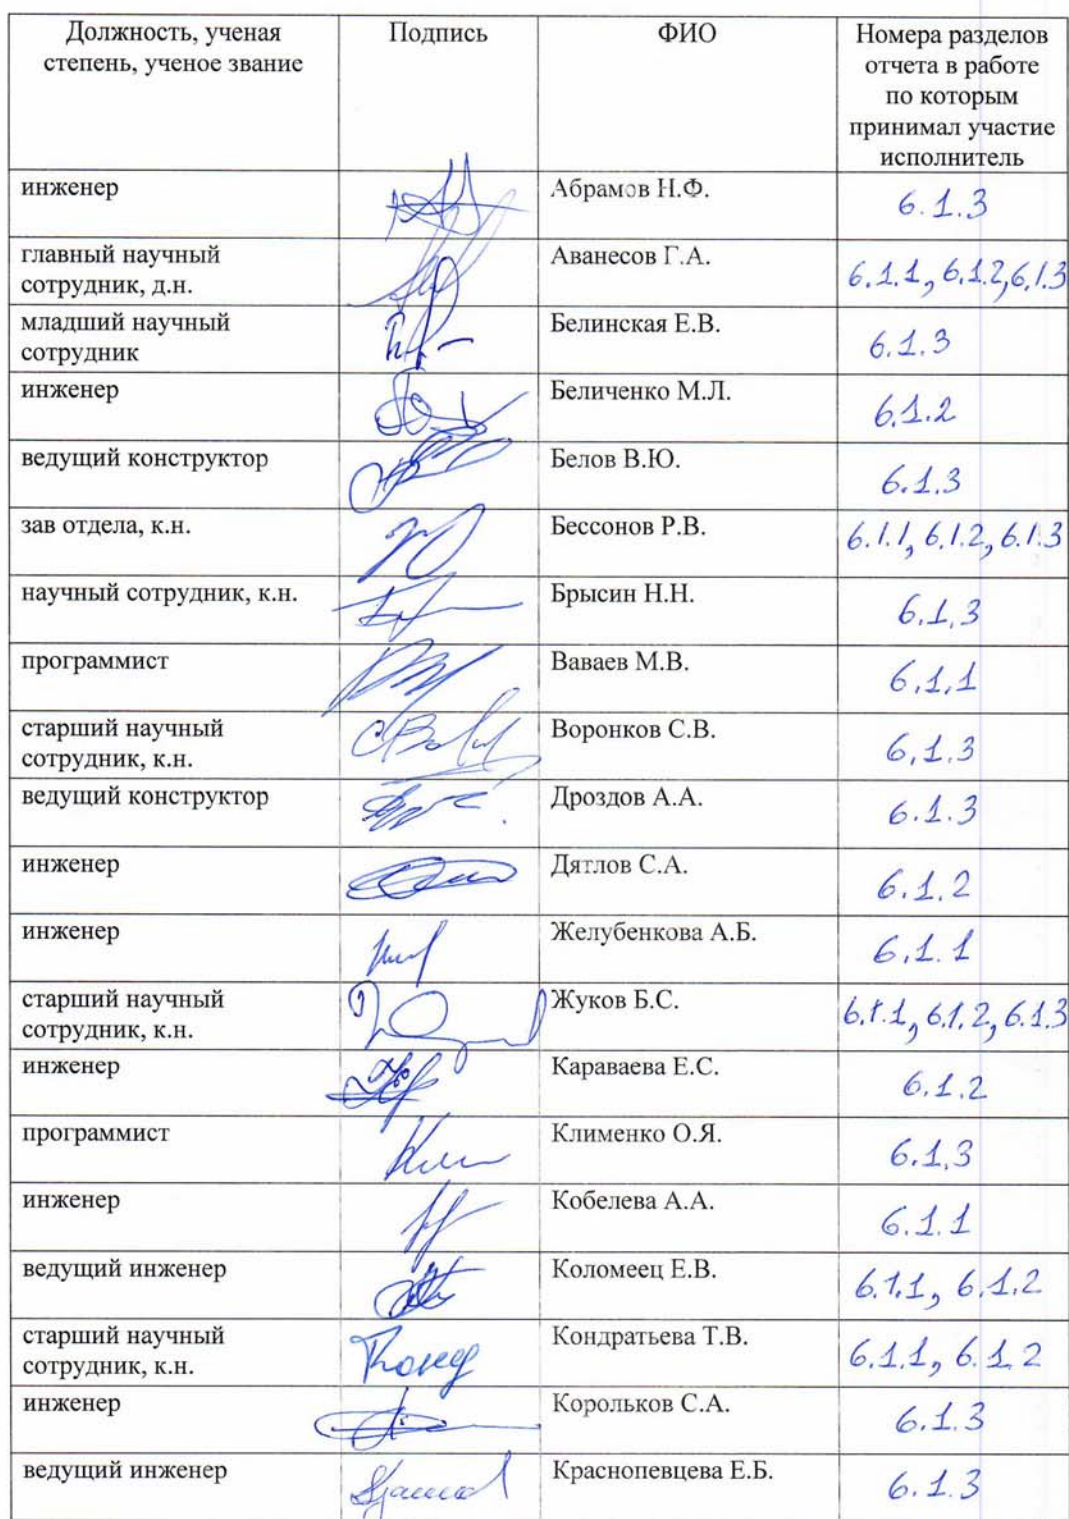 Должность, ученая степень, ученое звание
Подпись
ФИО
Номера разделов отчета в работе по которым принимал участие исполнитель
инженер
Абрамов Н.Ф.
6.1.3
главный научный сотрудник, д.н.
Аванесов Г.А.
6.1.1, 6.1.2, 6.1.3
младший научный сотрудник
Белинская Е.В.
6.1.3
инженер
Беличенко М.Л.
6.1.2
ведущий конструктор
Белов В.Ю.
6.1.3
зав отдела, к.н.
Бессонов Р.В.
6.1.1, 6.1.2, 6.1.3
научный сотрудник, к.н.
Брысин Н.Н.
6.1.3
программист
Ваваев М.В.
6.1.1
старший научный сотрудник, к.н.
Воронков С.В.
6.1.3
ведущий конструктор
Дроздов А.А.
6.1.3
инженер
Дятлов С.А.
6.1.2
инженер
Желубенкова А.Б.
6.1.1
старший научный сотрудник, к.н.
Жуков Б.С.
6.1.1, 6.1.2, 6.1.3
инженер
Караваева Е.С.
6.1.2
программист
Клименко О.Я.
6.1.3
инженер
Кобелева А.А.
6.1.1
ведущий инженер
Коломеец Е.В.
6.1.1, 6.1.2
старший научный сотрудник, к.н.
Кондратьева Т.В.
6.1.1, 6.1.2
инженер
Корольков С.А.
6.1.3
ведущий инженер
Краснопевцева Е.Б.
6.1.3